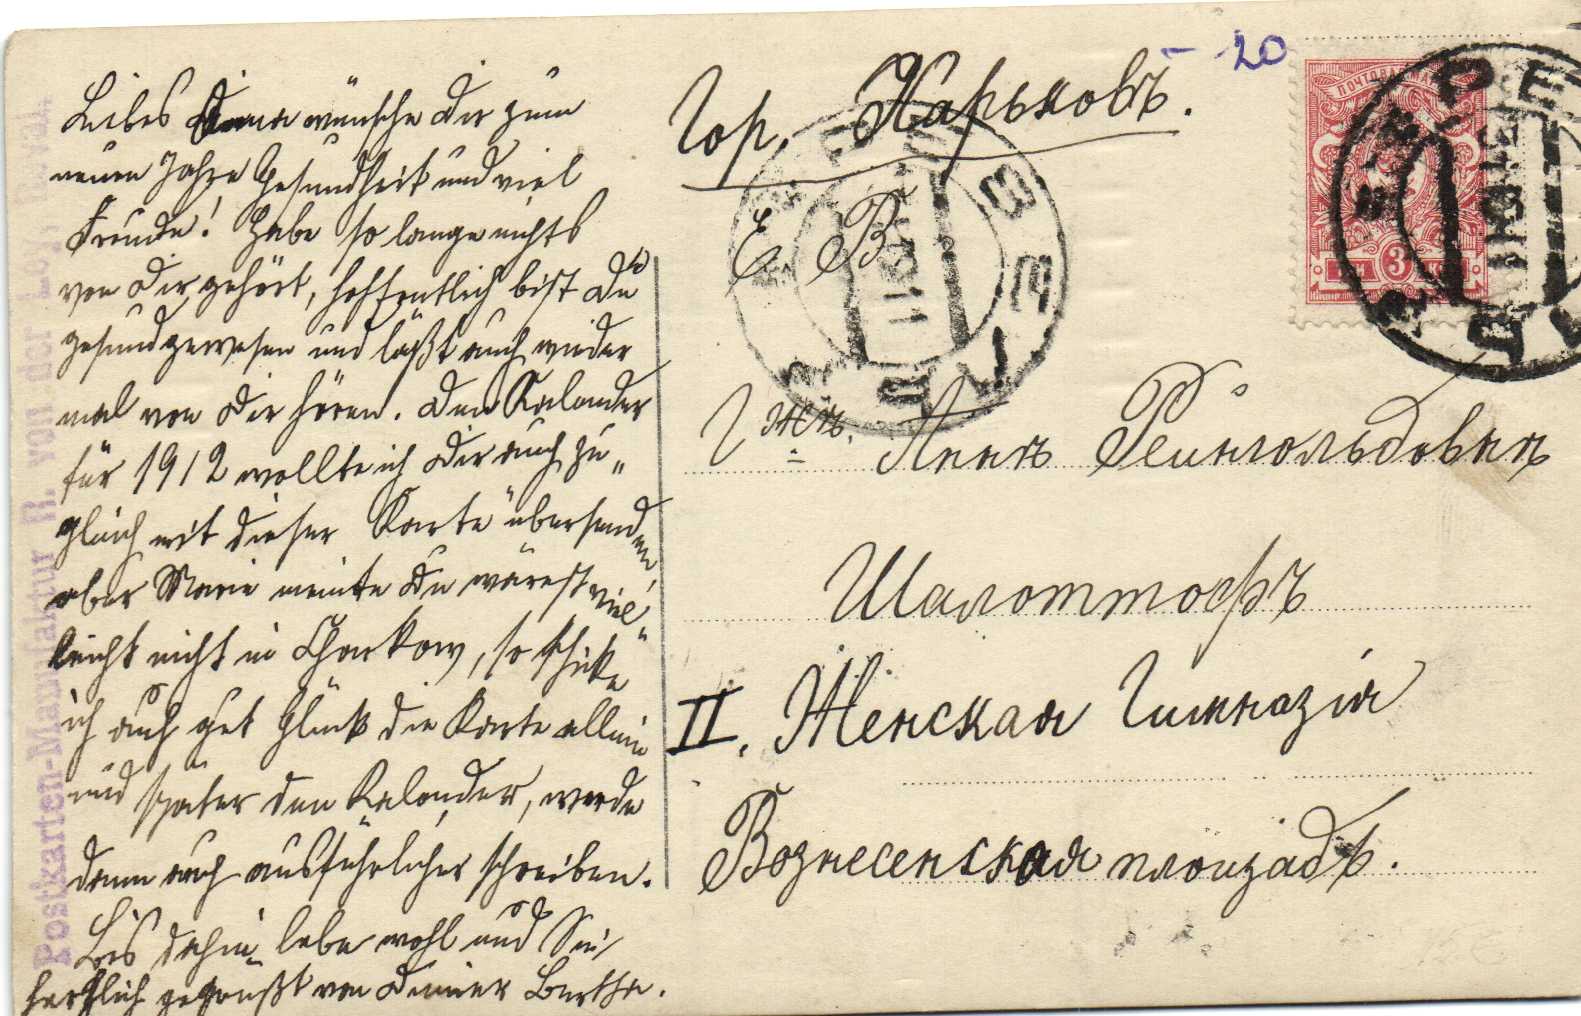 Liebes Änna wünsche Dir zum
neuen Jahre Gesundheit und viel
Freude! Habe so lange nichts
von Dir gehört, hoffentlich bist Du
gesund gewesen und läßt auch wieder
mal von Dir hören. Den Kalender
für 1912 wollte ich Dir auch zu„
gleich mit dieser Karte übersenden
aber Marie meinte Du wärest viel„
leicht nicht in Charkow, so schicke
ich auf gut Glück die Karte allein
und später den Kalender, werde
dann auch ausführlicher schreiben.
Bis dahin lebe wohl und Sei
herzlich gegrüßt von Deiner Bertha.
Postkarten-Manufaktur R. von der
20
Гор. Харьковъ.
Е В
Аннѣ Рейнгольдовнѣ
Шалоттофъ
II. Женская Гимназія
Вознесенская площадь.
ПОЧТОВАЯ МАРКА
3